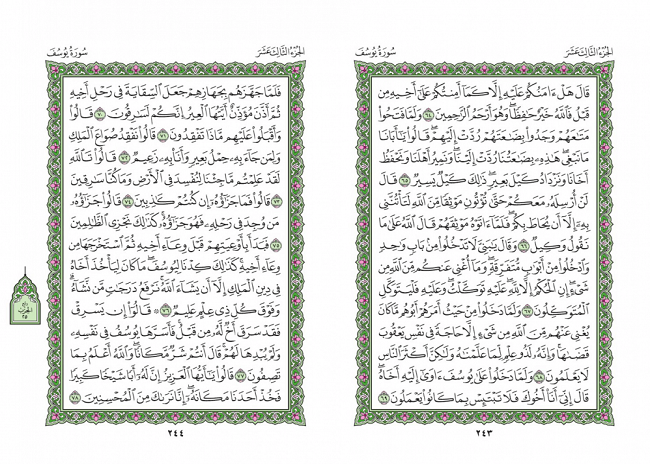 الجزء الثالث عشر
سورة يوسف
قَالَ هَلْ ءَامَنُكُمْ عَلَيْهِ إِلَّا كَمَآ أَمِنتُكُمْ عَلَىٰٓ أَخِيهِ مِن
قَبْلُ فَٱللَّهُ خَيْرٌ حَٰفِظًا وَهُوَ أَرْحَمُ ٱلرَّٰحِمِينَ ٦٤ وَلَمَّا فَتَحُوا۟
مَتَٰعَهُمْ وَجَدُوا۟ بِضَٰعَتَهُمْ رُدَّتْ إِلَيْهِمْ قَالُوا۟ يَٰٓأَبَانَا
مَا نَبْغِى هَٰذِهِۦ بِضَٰعَتُنَا رُدَّتْ إِلَيْنَا وَنَمِيرُ أَهْلَنَا وَنَحْفَظُ
أَخَانَا وَنَزْدَادُ كَيْلَ بَعِيرٍ ذَٰلِكَ كَيْلٌ يَسِيرٌ ٦٥ قَالَ
لَنْ أُرْسِلَهُۥ مَعَكُمْ حَتَّىٰ تُؤْتُونِ مَوْثِقًا مِّنَ ٱللَّهِ لَتَأْتُنَّنِى
بِهِۦٓ إِلَّآ أَن يُحَاطَ بِكُمْ فَلَمَّآ ءَاتَوْهُ مَوْثِقَهُمْ قَالَ ٱللَّهُ عَلَىٰ مَا
نَقُولُ وَكِيلٌ ٦٦ وَقَالَ يَٰبَنِىَّ لَا تَدْخُلُوا۟ مِنۢ بَابٍ وَٰحِدٍ
وَٱدْخُلُوا۟ مِنْ أَبْوَٰبٍ مُّتَفَرِّقَةٍ وَمَآ أُغْنِى عَنكُم مِّنَ ٱللَّهِ مِن
شَىْءٍ إِنِ ٱلْحُكْمُ إِلَّا لِلَّهِ عَلَيْهِ تَوَكَّلْتُ وَعَلَيْهِ فَلْيَتَوَكَّلِ
ٱلْمُتَوَكِّلُونَ ٦٧ وَلَمَّا دَخَلُوا۟ مِنْ حَيْثُ أَمَرَهُمْ أَبُوهُم مَّا كَانَ
يُغْنِى عَنْهُم مِّنَ ٱللَّهِ مِن شَىْءٍ إِلَّا حَاجَةً فِى نَفْسِ يَعْقُوبَ
قَضَىٰهَا وَإِنَّهُۥ لَذُو عِلْمٍ لِّمَا عَلَّمْنَٰهُ وَلَٰكِنَّ أَكْثَرَ ٱلنَّاسِ
لَا يَعْلَمُونَ ٦٨ وَلَمَّا دَخَلُوا۟ عَلَىٰ يُوسُفَ ءَاوَىٰٓ إِلَيْهِ أَخَاهُ
قَالَ إِنِّىٓ أَنَا۠ أَخُوكَ فَلَا تَبْتَئِسْ بِمَا كَانُوا۟ يَعْمَلُونَ ٦٩
٢٤٣
الجزء الثالث عشر
سورة يوسف
فَلَمَّا جَهَّزَهُم بِجَهَازِهِمْ جَعَلَ ٱلسِّقَايَةَ فِى رَحْلِ أَخِيهِ
ثُمَّ أَذَّنَ مُؤَذِّنٌ أَيَّتُهَا ٱلْعِيرُ إِنَّكُمْ لَسَٰرِقُونَ ٧٠ قَالُوا۟
وَأَقْبَلُوا۟ عَلَيْهِم مَّاذَا تَفْقِدُونَ ٧١ قَالُوا۟ نَفْقِدُ صُوَاعَ ٱلْمَلِكِ
وَلِمَن جَآءَ بِهِۦ حِمْلُ بَعِيرٍ وَأَنَا۠ بِهِۦ زَعِيمٌ ٧٢ قَالُوا۟ تَٱللَّهِ
لَقَدْ عَلِمْتُم مَّا جِئْنَا لِنُفْسِدَ فِى ٱلْأَرْضِ وَمَا كُنَّا سَٰرِقِينَ
٧٣ قَالُوا۟ فَمَا جَزَٰٓؤُهُۥٓ إِن كُنتُمْ كَٰذِبِينَ ٧٤ قَالُوا۟ جَزَٰٓؤُهُۥ
مَن وُجِدَ فِى رَحْلِهِۦ فَهُوَ جَزَٰٓؤُهُۥ كَذَٰلِكَ نَجْزِى ٱلظَّٰلِمِينَ
٧٥ فَبَدَأَ بِأَوْعِيَتِهِمْ قَبْلَ وِعَآءِ أَخِيهِ ثُمَّ ٱسْتَخْرَجَهَا مِن
وِعَآءِ أَخِيهِ كَذَٰلِكَ كِدْنَا لِيُوسُفَ مَا كَانَ لِيَأْخُذَ أَخَاهُ
فِى دِينِ ٱلْمَلِكِ إِلَّآ أَن يَشَآءَ ٱللَّهُ نَرْفَعُ دَرَجَٰتٍ مَّن نَّشَآءُ
وَفَوْقَ كُلِّ ذِى عِلْمٍ عَلِيمٌ ٧٦ قَالُوٓا۟ إِن يَسْرِقْ
فَقَدْ سَرَقَ أَخٌ لَّهُۥ مِن قَبْلُ فَأَسَرَّهَا يُوسُفُ فِى نَفْسِهِۦ
وَلَمْ يُبْدِهَا لَهُمْ قَالَ أَنتُمْ شَرٌّ مَّكَانًا وَٱللَّهُ أَعْلَمُ بِمَا
تَصِفُونَ ٧٧ قَالُوا۟ يَٰٓأَيُّهَا ٱلْعَزِيزُ إِنَّ لَهُۥٓ أَبًا شَيْخًا كَبِيرًا
فَخُذْ أَحَدَنَا مَكَانَهُۥٓ إِنَّا نَرَىٰكَ مِنَ ٱلْمُحْسِنِينَ ٧٨
٢٤٤
الحزب
٢٥